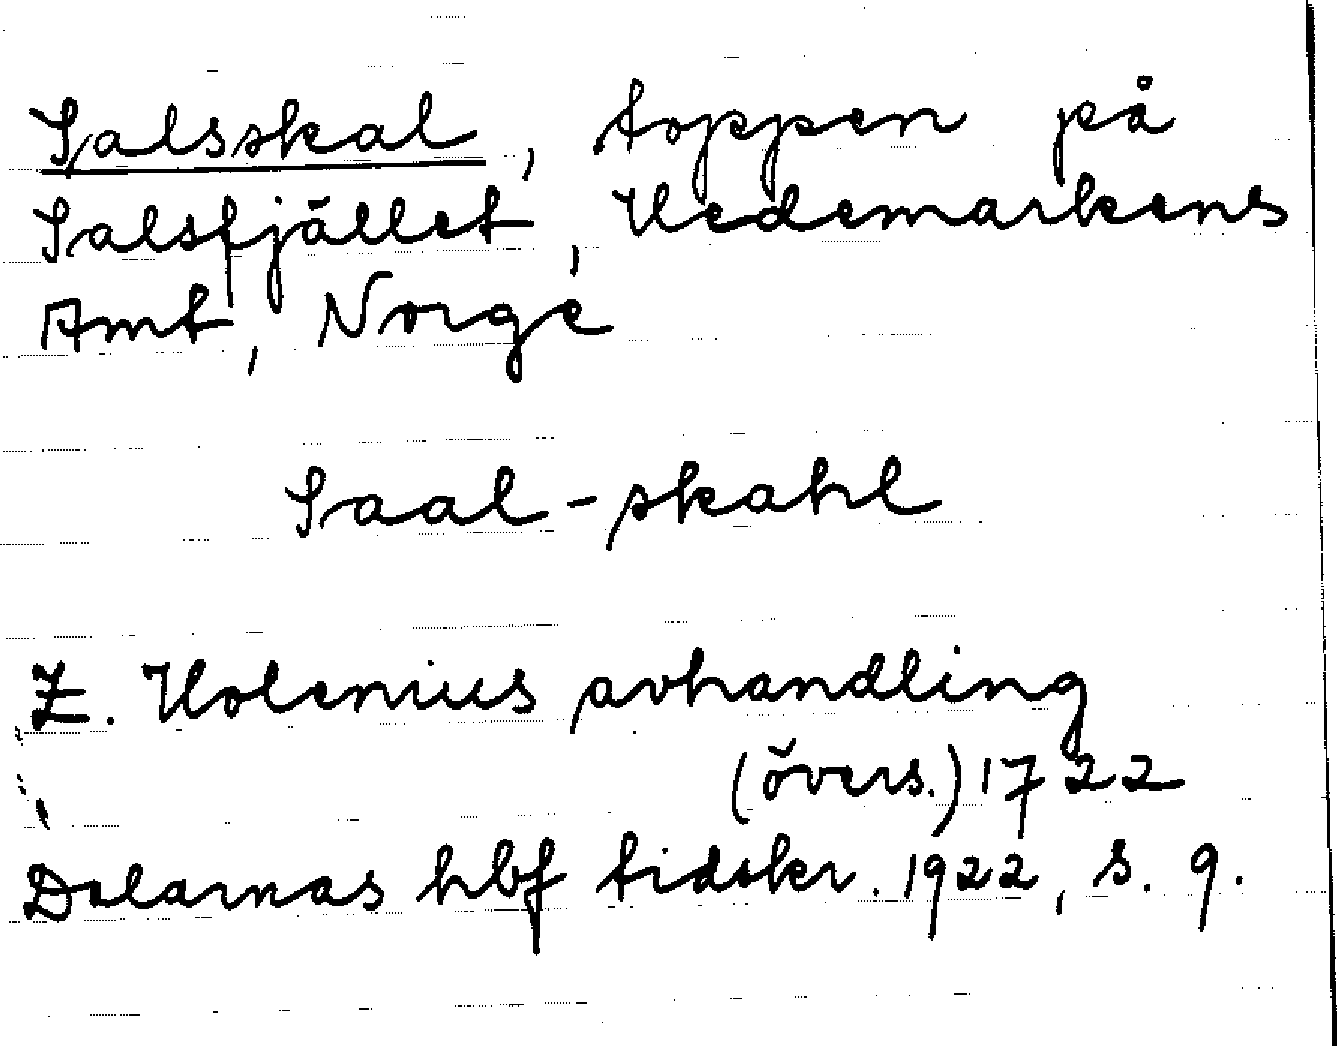 Salsskal, toppen på
Salsfjället, Hedemarkens
Amt, Norge
Saal-skahl
E. Holenius avhandling
(övers.) 1722
Dalarnas hbf tidskr. 1922, s. 9.